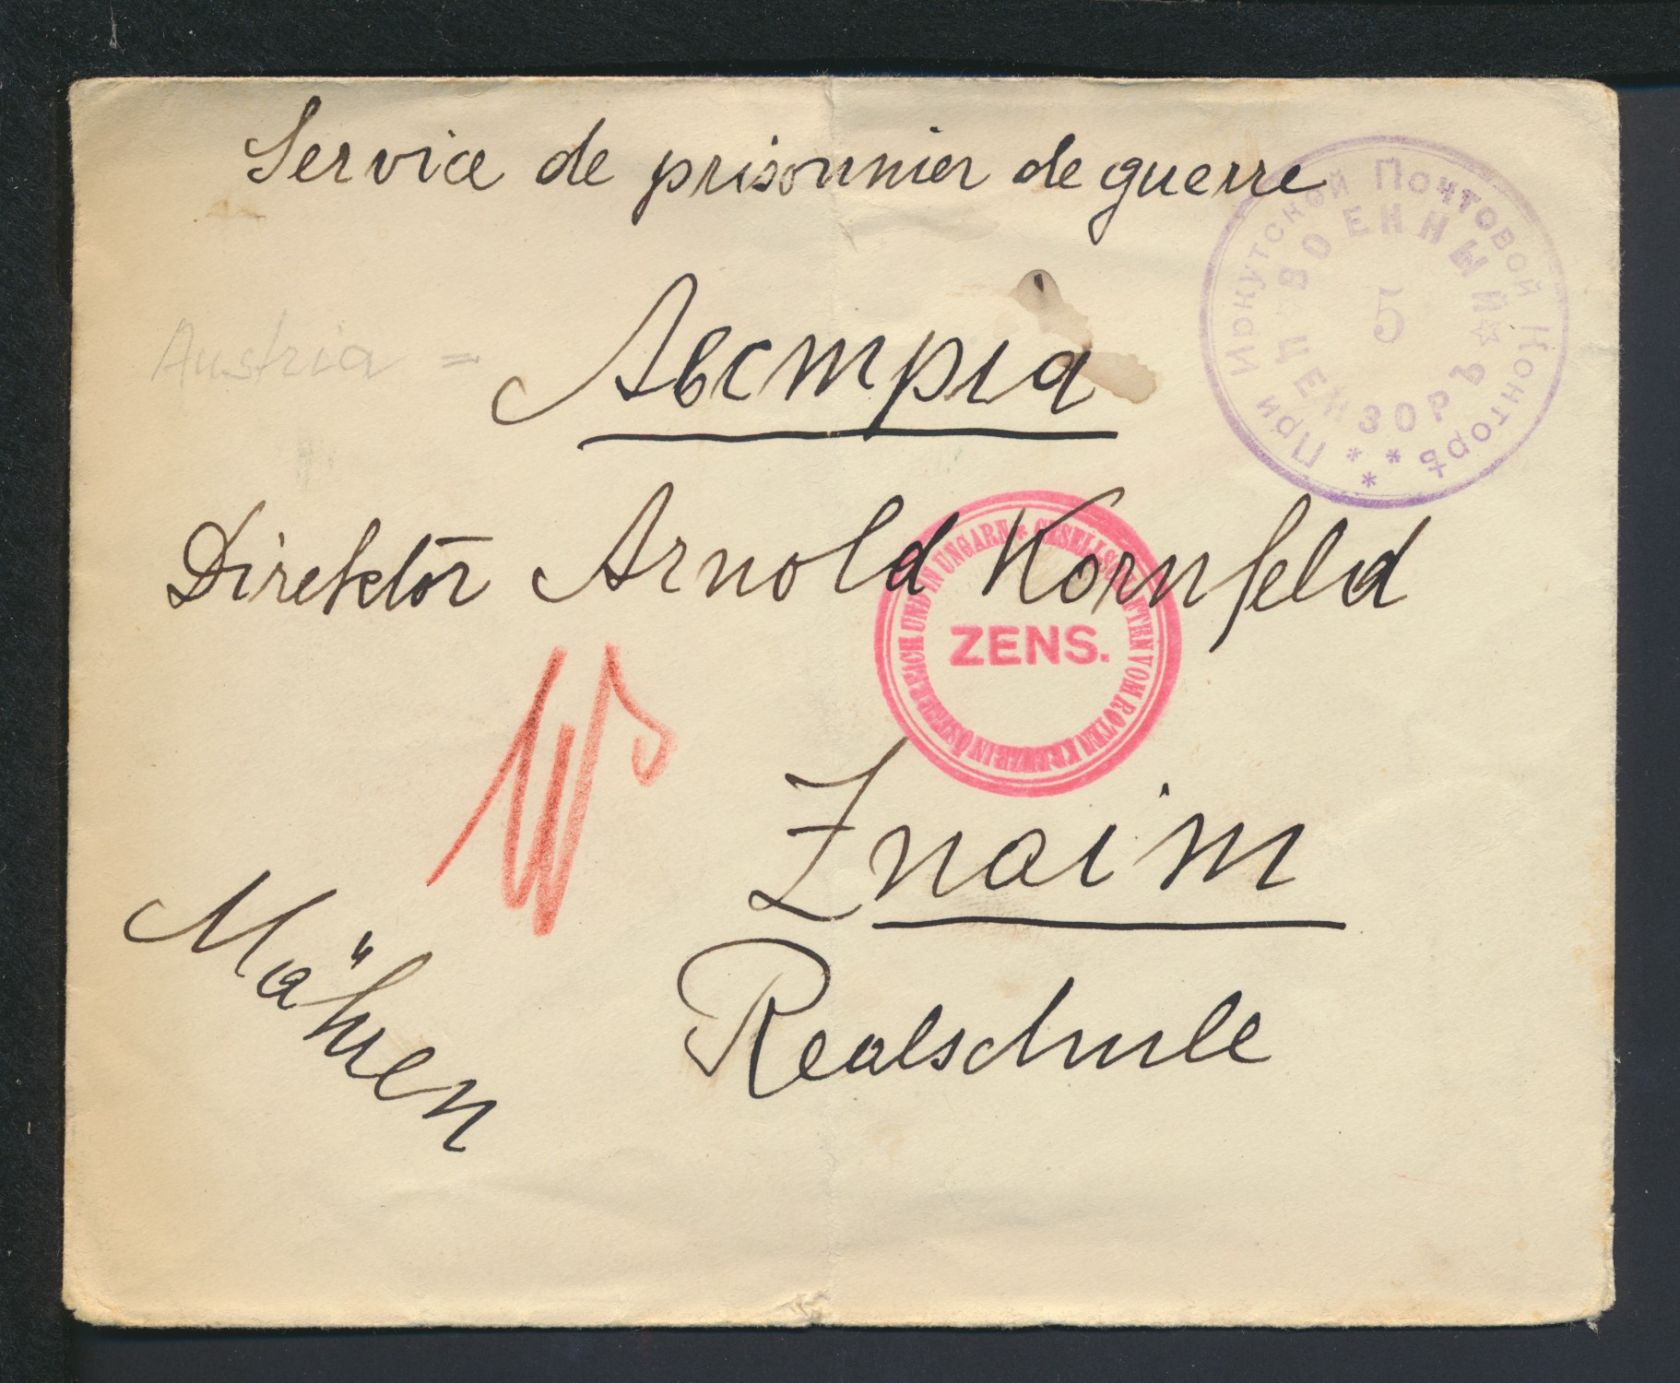 Service de prisonnier de guerre
При Иркутской Почтовой Конторѣ
ВОЕННЫЙ ЦЕНЗОРЪ
5
Austria =
Австрiа
Direktor Arnold Kornfeld
GESELLSCHAFTEN VOM ROTEN KREUZE IN ÖSTERREICH UND IN UNGARN
ZENS.
Znaim
Mähren
Realschule